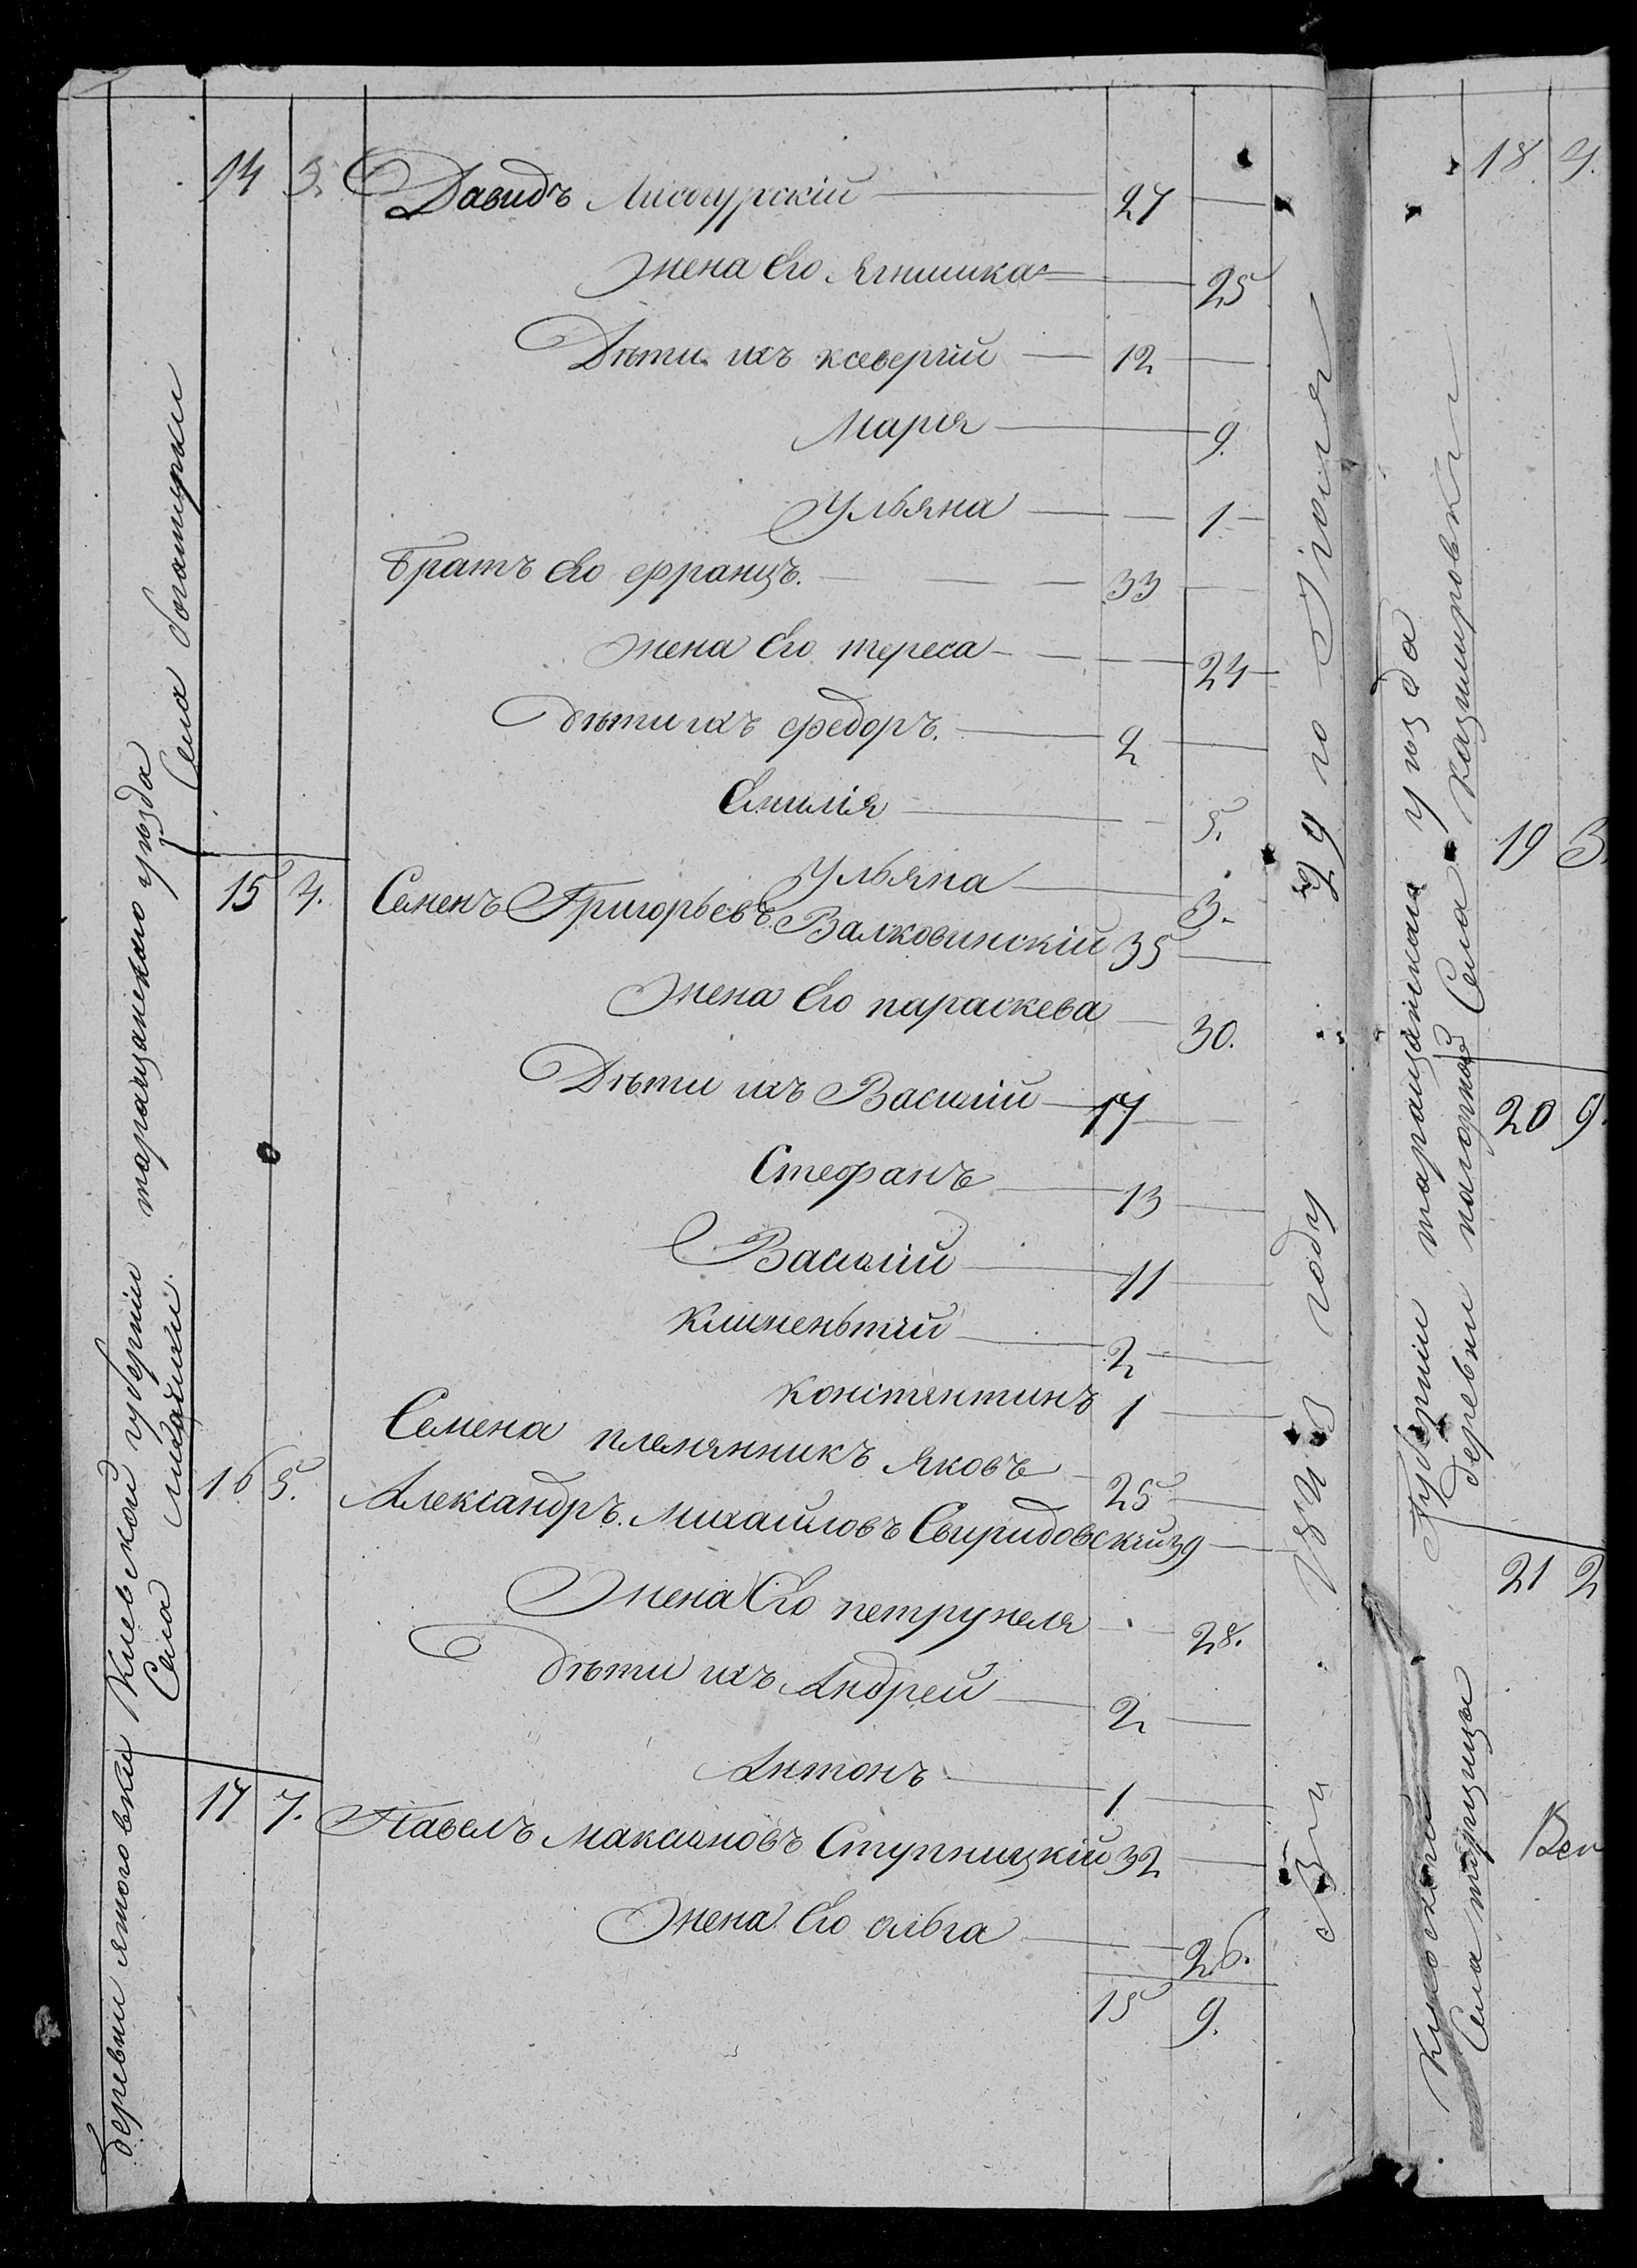 14 3. Давидъ Лисогурскій 27
жена Его Ягнишка 25
Дѣти ихъ ксеверій 12
Марія 9.
Ульяна 1
Братъ Его францъ. 33
жена Его тереса 24
дѣти ихъ федоръ. 2
Емилія 5.
Ульяна 3.
15 4. Семенъ Григорьевъ Валковинскій 35
жена Его параскева 30.
Дѣти ихъ Василій 17
Стефанъ 13
Василій 11
Климентій 2
Константинъ 1
Семена племянникъ яковъ 25
16 5. Александръ Михаиловъ Свиридовскій 39
Жена Его петрунеля 28.
дѣти ихъ Андрей 2
Антонъ 1
17 7. Павелъ Максимовъ Ступницкій 32
Жена Его ольга 26.
15 9.
деревни Киевской губерніи таращанскаго уѣзда
Села Села
29 го Іюня
году
18 4.
19 3.
20 9.
21 2
Губерніи таращанскаго уѣзда
деревни Села Казимировки
Села